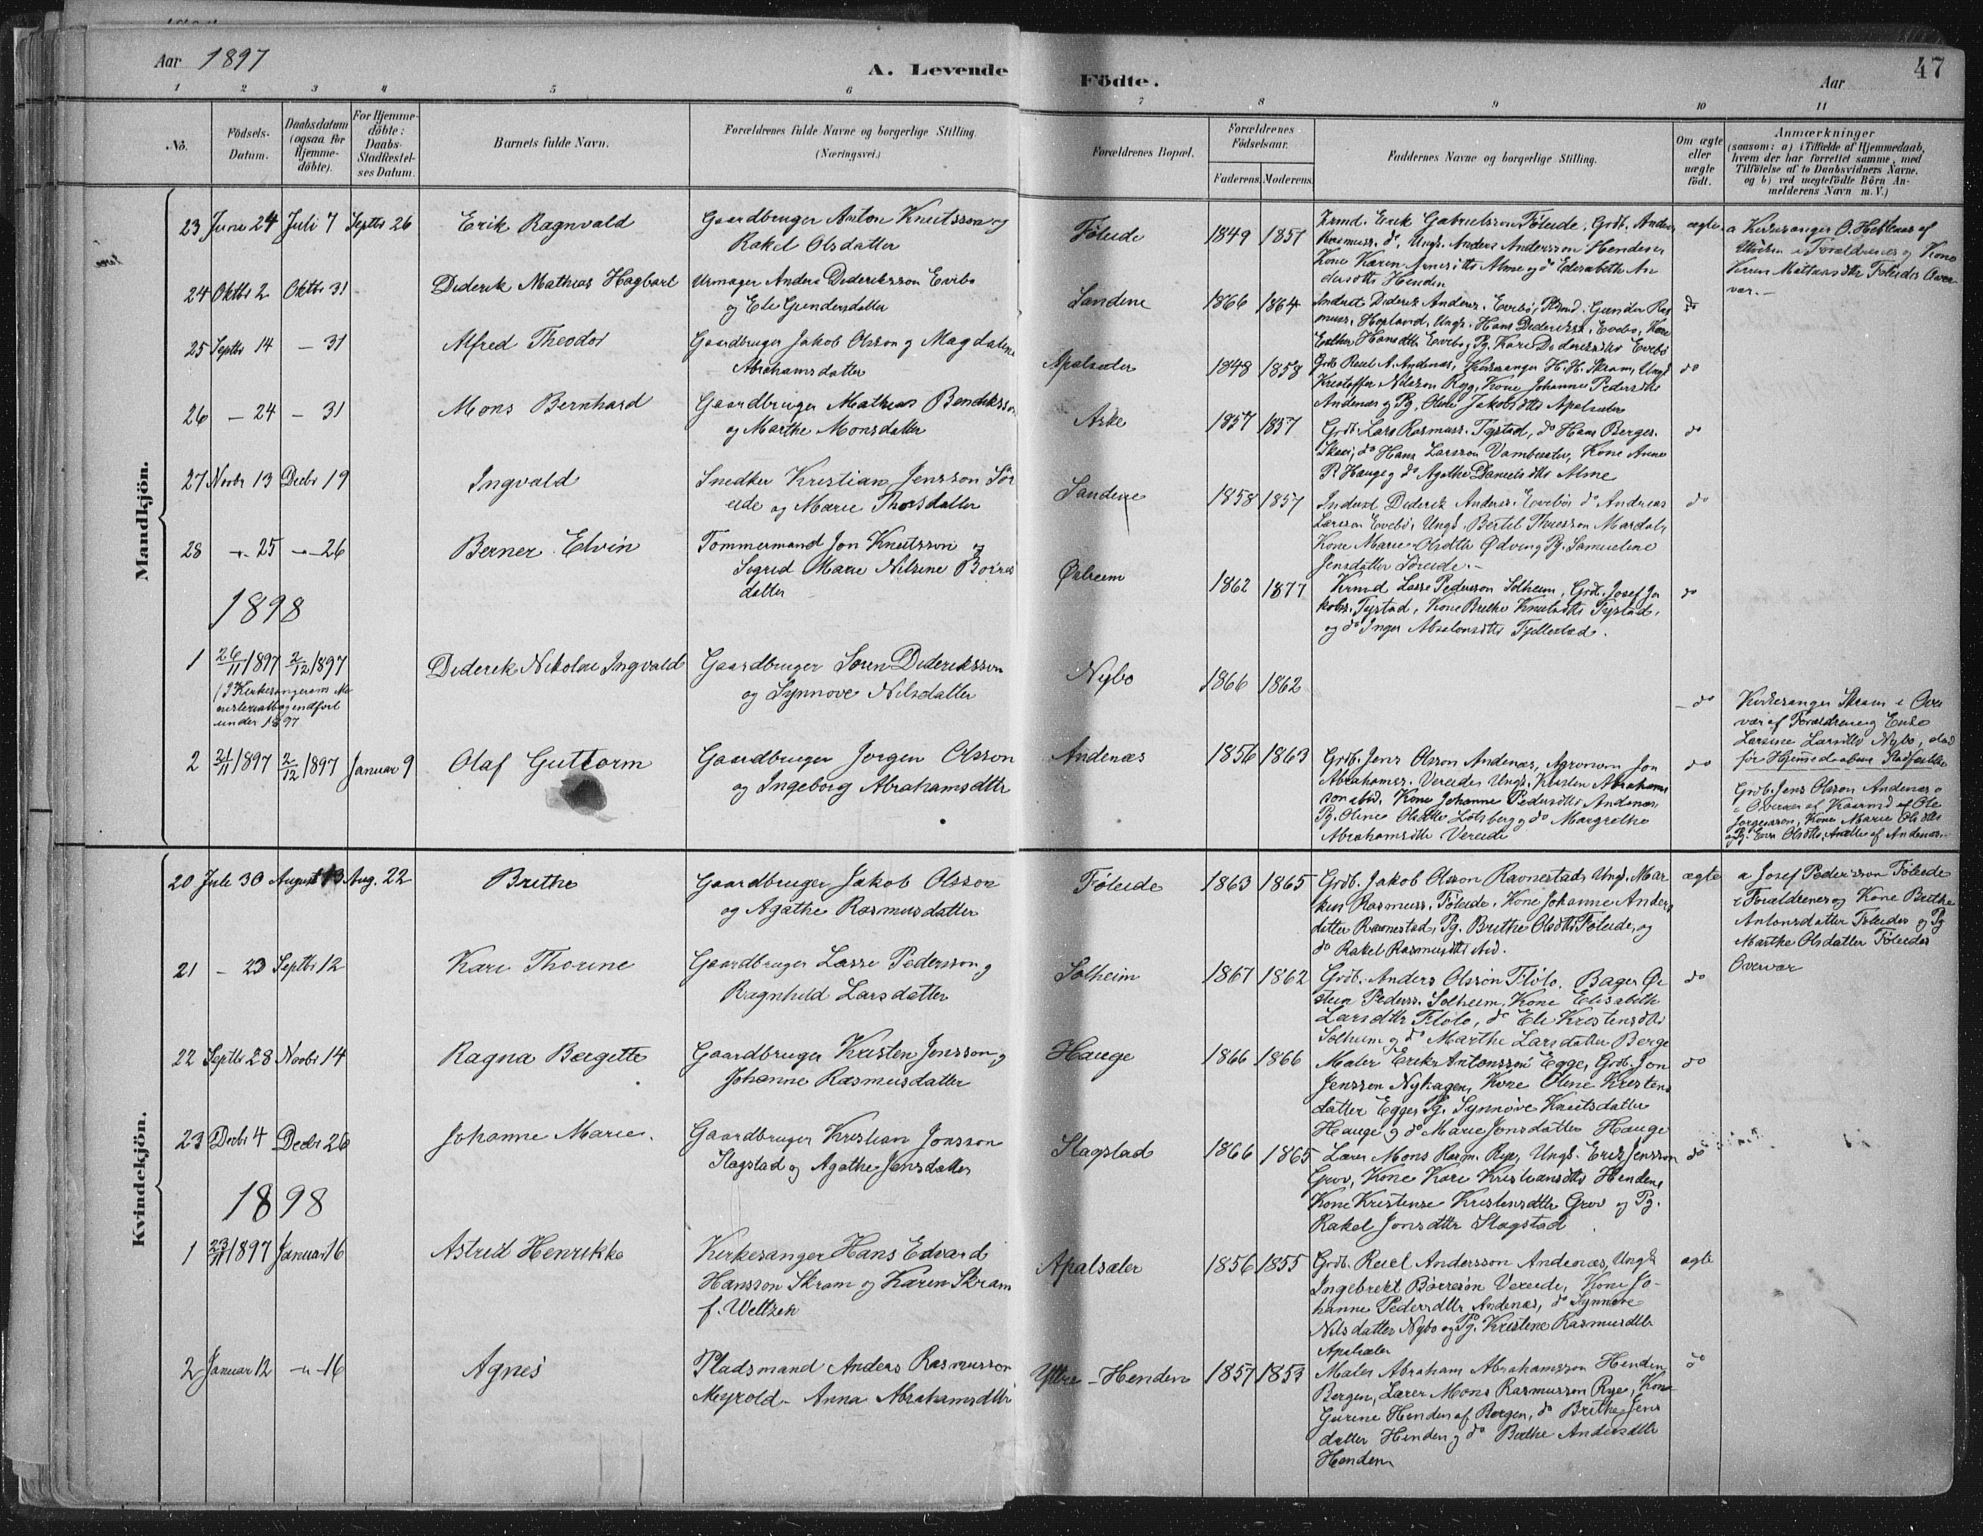 Aar 1897
A. Levende Födte.
Aar
47
1 2 3 4 5 6 7 8 9 10 11
No.
Födsels-Datum.
Daabsdatum (ogsaa for Hjemme-döbte).
For Hjemme-döbte: Daabs-Stadfæstel-ses Datum.
Barnets fulde Navn.
Forældrenes fulde Navne og borgerlige Stilling.
(Næringsvei.)
Forældrenes Bopæl.
Forældrenes Födselsaar.
Faderens. Moderens.
Faddernes Navne og borgerlige Stilling.
Om ægte eller uægte födt.
Anmærkninger
(saasom: a) i Tilfælde af Hjemmedaab,
hvem der har forrettet samme, med
Tilföielse af to Daabsvidners Navne.
og b) ved uægtefödte Börn An-
melderens Navn m. V.)
Mandkjön.
23 Juni 24 Juli 7 Septbr 26 Erik Ragnvald Gaardbruger Anton Knutsson og
Rakel Olsdatter
Föleide 1849 1857
Krmd. Erik Gabrielsson Föleide, Grdb. Anders
Rasmuss. do, Ungk. Anders Andersson Henden,
Kone Karen Arnesdtr Alme og do Elisabeth An
dersdtr Henden
ægte
a Kirkesanger O. Hestenes af
i Forældrenes og Kone
Karen Mathiasdtr Föleides Over
vær.
24 Oktbr 2 Oktbr 31 Diderik Mathias Hagbart Urmager Anders Dideriksson Evebö
og Eli Gundersdatter
Sandene 1866 1864
Inderst Diderik Anders. Evebö, Krmd. Gunder Ras
muss. Hopland, Ungk. Hans Dideriks. Evebö, Kone
Esther Hansdtr Evebö og Pg. Kari Dideriksdtr Evebö
do
25 Septbr 14 — 31 Alfred Theodor Gaardbruger Jakob Olsson og Magdalene
Abrahamsdatter
Apalsæter 1848 1858
Grdb Reiel A. Andenæs, Kirkesanger H. H. Skram, Ungk
Kristoffer Nilsson Ryg, Kone Johanne Pedersdtr
Andenæs og Pg. Oline Jakobsdtr Apalsæter
do
26 — 24 — 31 Mons Bernhard Gaardbruger Mathias Bendiksson
og Marthe Monsdatter
Aske 1857 1857
Grdb. Lars Rasmuss. Tystad, do Hans Berges.
Skei, do Hans Larsson Vambesæter, Kone Anne
R. Hauge og do Agathe Danielsdtr Alme
do
27 Novbr 13 Decbr 19 Ingvald Snedker Kristian Jensson Sör
eide og Marie Thorsdatter
Sandene 1858 1857
Inderst Diderik Anders. Evebö, do Andreas
Larsson Evebö, Ungk. Bertel Thuesson Mardal,
Kone Marie Olsdtr Ødven og Pg. Samueline
Jensdatter Söreide.
do
28 — 25 — 26 Berner Elvin Tömmermand Jon Knutsson og
Sigrid Marie Nilsine Börres
datter
Øxheim 1862 1877
Krmd Lasse Pederson Solheim, Grdb. Josef Ja
kobs. Tystad, Kone Brithe Knutsdtr Tystad,
og do Inger Absalonsdtr Fydlestad.
do
1898
1 26/11 1897 2/12 1897 Diderik Nikolai Ingvald Gaardbruger Sören Dideriksson
og Synnöve Nilsdatter
(I Kirkesangerens Mi
nisterialbog indfört
under 1897
Nybö 1866 1862
do
Kirkesanger Skram i Over
vær af Forældrene og Enke
Larsine Larsdtr Nybö, död
för Hjemmedaabens Stadfæstelse
2 21/11 1897 2/12 1897 Januar 9 Olaf Guttorm Gaardbruger Jörgen Olsson
og Ingeborg Abrahamsdtr
Andenæs 1856 1863
Grdb. Jens Olsson Andenæs, Agronom Jon
Abrahams. Vereide, Ungk. Kristen Abrahams
son ibid, Kone Johanne Pedersdtr Andenæs
Pg. Oline Olsdtr Lotsberg og do Margrethe
Abrahamsdtr Vereide
do
Grdb. Jens Olsson Andenæs
i Overvær af Kaarmd af Ole
Jörgensson, Kone Marie Olsdtr
og Pg. Eva Olsdtr, Andenæs.
Kvindekjön.
20 Juli 30 August 13 Aug. 22 Brithe Gaardbruger Jakob Olsson
og Agathe Rasmusdatter
Föleide 1863 1865
Grdb. Jakob Olsson Ravnestad, Ungk. Mar
kus Rasmuss. Föleide, Kone Johanne Anders
datter Ravnestad, Pg. Brithe Olsdtr Föleide, og
do Rakel Rasmusdtr ibid.
ægte
a Josef Pedersson Föleide
i Forældrenes og Kone Brithe
Antonsdatter Föleides og Pg
Marthe Olsdatter Föleides
Overvær
21 — 23 Septbr 12 Kari Thorine Gaardbruger Lasse Pedersson og
Ragnhild Larsdatter
Solheim 1867 1862
Grdb. Anders Olsson Flölo, Bager Øi
stein Pederss. Solheim, Kone Elisabeth
Larsdtr Flölo, do Eli Kristensdtr
Solheim og do Marthe Larsdatter Berge
do
22 Septbr 28 Novbr 14 Ragna Bergitte Gaardbruger Kristen Jonsson og
Johanne Rasmusdatter
Hauge 1866 1866
Maler Erik Antonsson Egge, Grdb. Jon
Jensson Nyhagen, Kone Oline Kristens
datter Egge, Pg. Synnöve Knutsdatter
Hauge og do Marie Jonsdatter Hauge
do
23 Decbr 4 Decbr 26 Johanne Marie. Gaardbruger Kristian Jonsson
Slagstad og Agathe Jensdatter
Slagstad 1866 1865
Lærer Mons Rasm. Rye, Ungk. Erik Jensson
Grov, Kone Kari Kristiansdtr Henden,
Kone Kristense Kristensdtr Grov og Pg.
Rakel Jonsdtr Slagstad
do
1898
1 23/11 1897 Januar 16 Astrid Henrikke Kirkesanger Hans Edvard
Hansson Skram og Karen Skram
f. Weltzen
Apalsæter 1856 1855
Grdb. Reiel Andersson Andenæs, Ungk
Ingebrekt Börresön Vereide, Kone Jo-
hanne Pedersdtr Andenæs, do Synnöve
Nilsdatter Nybö og Pg. Kristine Rasmusdtr
Apalsæter
ægte
2 Januar 12 — 16 Agnes Pladsmand Anders Rasmusson
Myrold - Anna Abrahamsdtr
Ytre-Henden 1857 1853
Maler Abraham Abrahamsson Henden
Bergen, Lærer Mons Rasmusson Rye, Kone
Gurine Henden af Bergen, do Brithe Jens
datter Henden og do Brithe Andersdtr
Henden
do